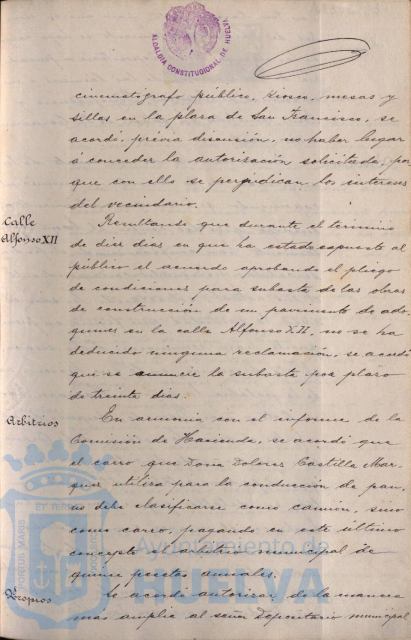 ALCALDIA CONSTITUCIONAL DE HUELVA
cinematógrafo público, kiosco, mesas y
sillas en la plaza de San Francisco, se
acordó, previa discusión, no haber lugar
á conceder la autorización solicitada, por
que con ello se perjudican los intereses
del vecindario.
Calle
Alfonso XII
Resultando que durante el termino
de diez dias en que ha estado expuesto al
público el acuerdo aprobando el pliego
de condiciones para subasta de las obras
de construcción de un pavimento de ado-
quines en la calle Alfonso XII, no se ha
deducido ninguna reclamación, se acordó
que se anuncie la subasta por plazo
de treinta dias.
Arbitrios
En armonia con el informe de la
Comisión de Hacienda, se acordó que
el carro que Dona Dolores Castilla Mar-
quez utiliza para la conducción de pan,
no debe clasificarse como camión, sino
como carro, pagando en este último
concepto el arbitrio municipal de
quince pesetas anuales.
Propios
Se acordó autorizar de la manera
más amplia al señor Depositario municipal
PORTUS MARIS ET TERRE
Ayuntamiento de
HUELVA